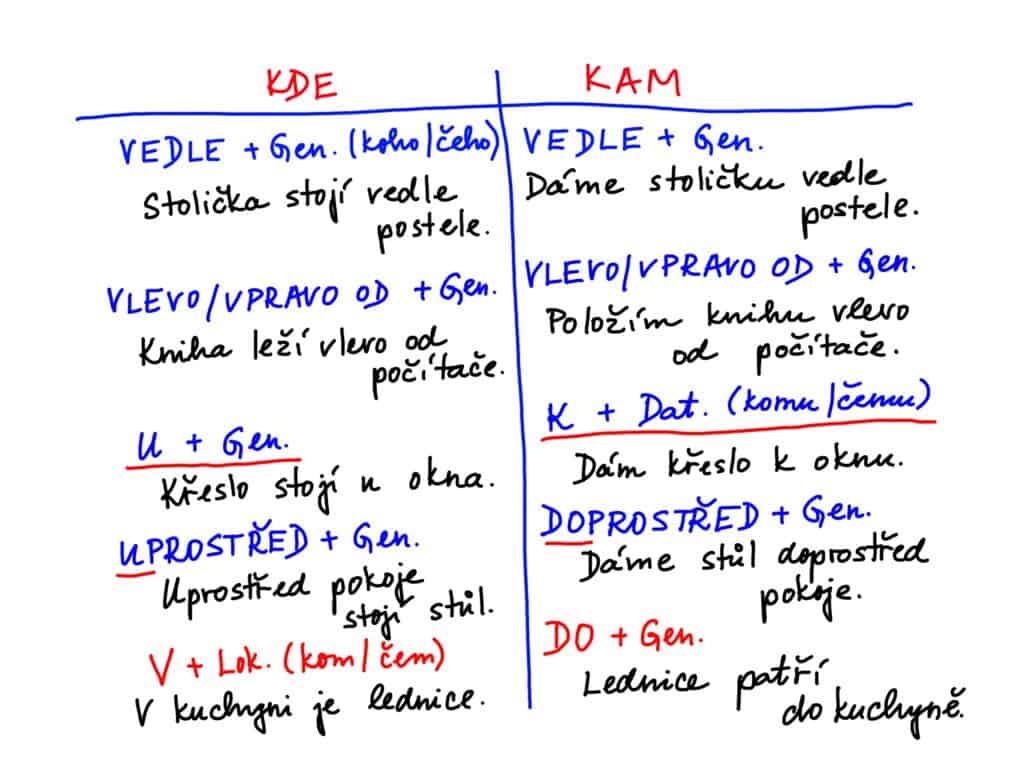 KDE
VEDLE + Gen. (koho/čeho)
Stolička stojí vedle
postele.
VLEVO/VPRAVO OD + Gen.
Kniha leží vlevo od
počítače.
U + Gen.
Křeslo stojí u okna.
UPROSTŘED + Gen.
Uprostřed pokoje
stojí stůl.
V + Lok. (kom/čem)
V kuchyni je lednice.
KAM
VEDLE + Gen.
Dáme stoličku vedle
postele.
VLEVO/VPRAVO OD + Gen.
Položím knihu vlevo
od počítače.
K + Dat. (komu/čemu)
Dám křeslo k oknu.
DOPROSTŘED + Gen.
Dáme stůl doprostřed
pokoje.
DO + Gen.
Lednice patří
do kuchyně.